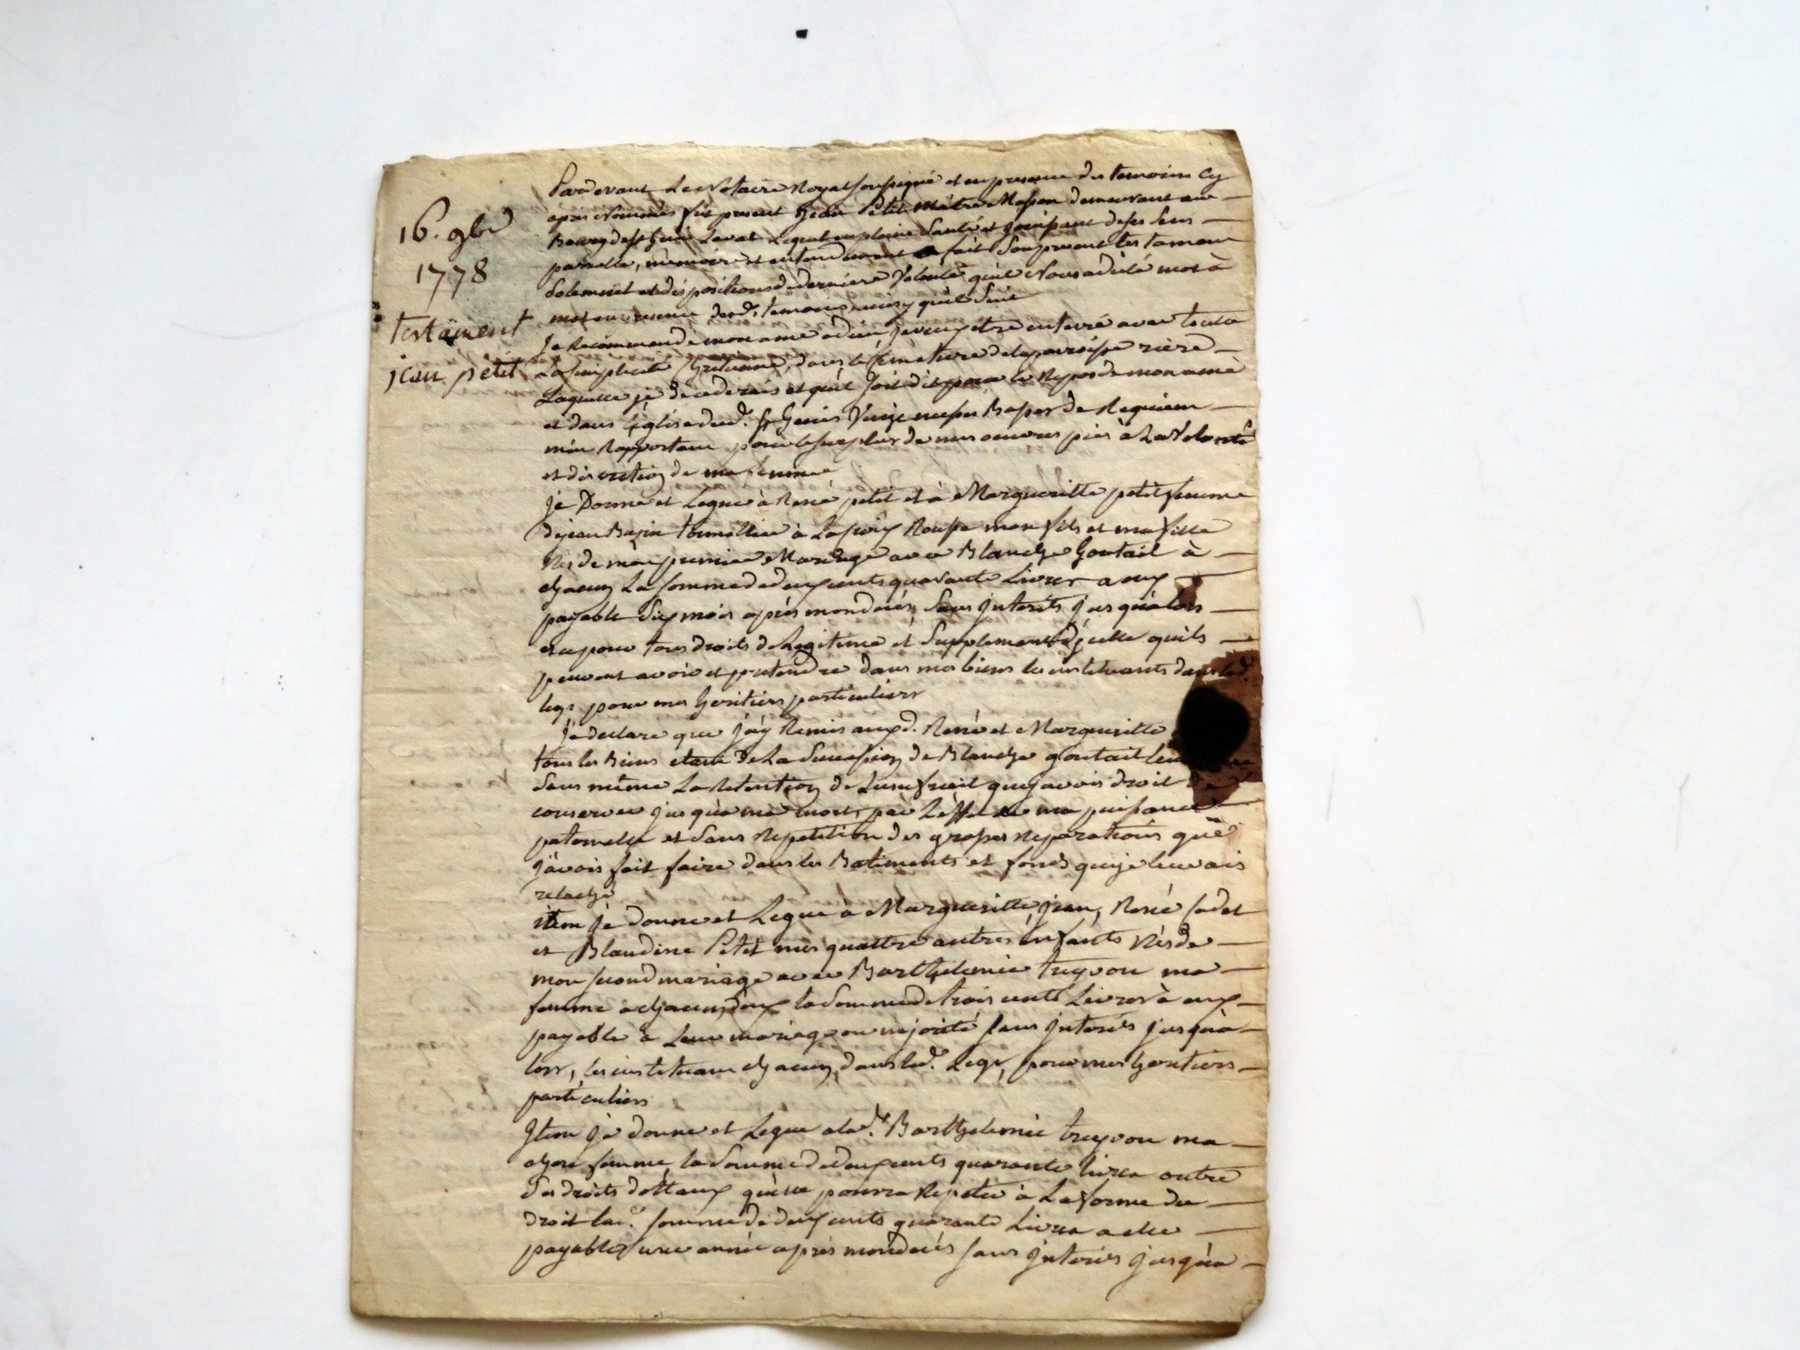 16. 9bre
1778
testament
jean petit
Pardevant Le Notaire Royal soussigné et en presence des temoins cy
après Nommés fut present Jean Petit Maitre Masson demeurant au
Bourg de St Genis Laval Lequel en pleine Santé et jouissant de ses Sens
parolle, memoire et entendement a fait Son present testament
Solemnel et dispositions de derniere Volonté qu'il Nous a dicté mot à
mot en presence desd. temoins ainsy qu'il Suit
Je Recommande mon ame a dieu, Je veux etre enterré avec toute
La simplicité Chretienne, dans le Cimetiere de la paroisse riere
Laquelle je decederais et qu'il soit dit pour le Repos de mon ame
et dans l'église dud. St Genis Messes Basses de Requiem
m'en Rapportant pour le surplus de mes oeuvres pies à La Volonté
et discretion de ma femme
Je Donne et Legue à René petit et à Margueritte petit femme
de jean Bazin tonnellier à La mon fils et ma fille
Nés de mon premier Mariage avec Blanche Goutail à
chacun La somme de deux cents quarante Livres a eux
payable Six mois après mon decés, Sans Interêts jusqu'alors
et ce pour tous droits de Legitime et Supplement d'jcelle qu'ils
peuvent avoir et pretendre dans mes biens les instituants dans led.
legs pour mes heritiers particuliers
Je declare que j'ay Remis auxd. René et Margueritte
tous les Biens de La Succession de Blanche goutail leur
Sans même La Retention de L'usufruit que j'avois droit de
conserver jusqu'a ma mort, par L'effet de ma puissance
paternelle et Sans Repetition des grosses Reparations que
j'avois fait faire dans les Batiments et fonds que je leur ais
relaché
item Je donne et Legue à Margueritte, jean, René Cadet
et Blandine Petit mes quattre autres enfants Nés de
mon second mariage avec Barthelemie treyvou ma
femme a chacun d'eux la Somme de trois cents Livres à eux
payable à Leur mariage ou majorité sans Interêts jusqu'a
lors, les instituant chacun, dans led. Legs, pour mes heritiers
particuliers
Item Je donne et Legue a lad. Barthelemie treyvou ma
chere femme, la Somme de deux cents quarante livres outre
Ses droits dottaux qu'elle pourra Repeter à La forme du
droit lad. somme de deux cents quarante Livres a elle
payable une année après mon decés sans Interêts jusqu'a